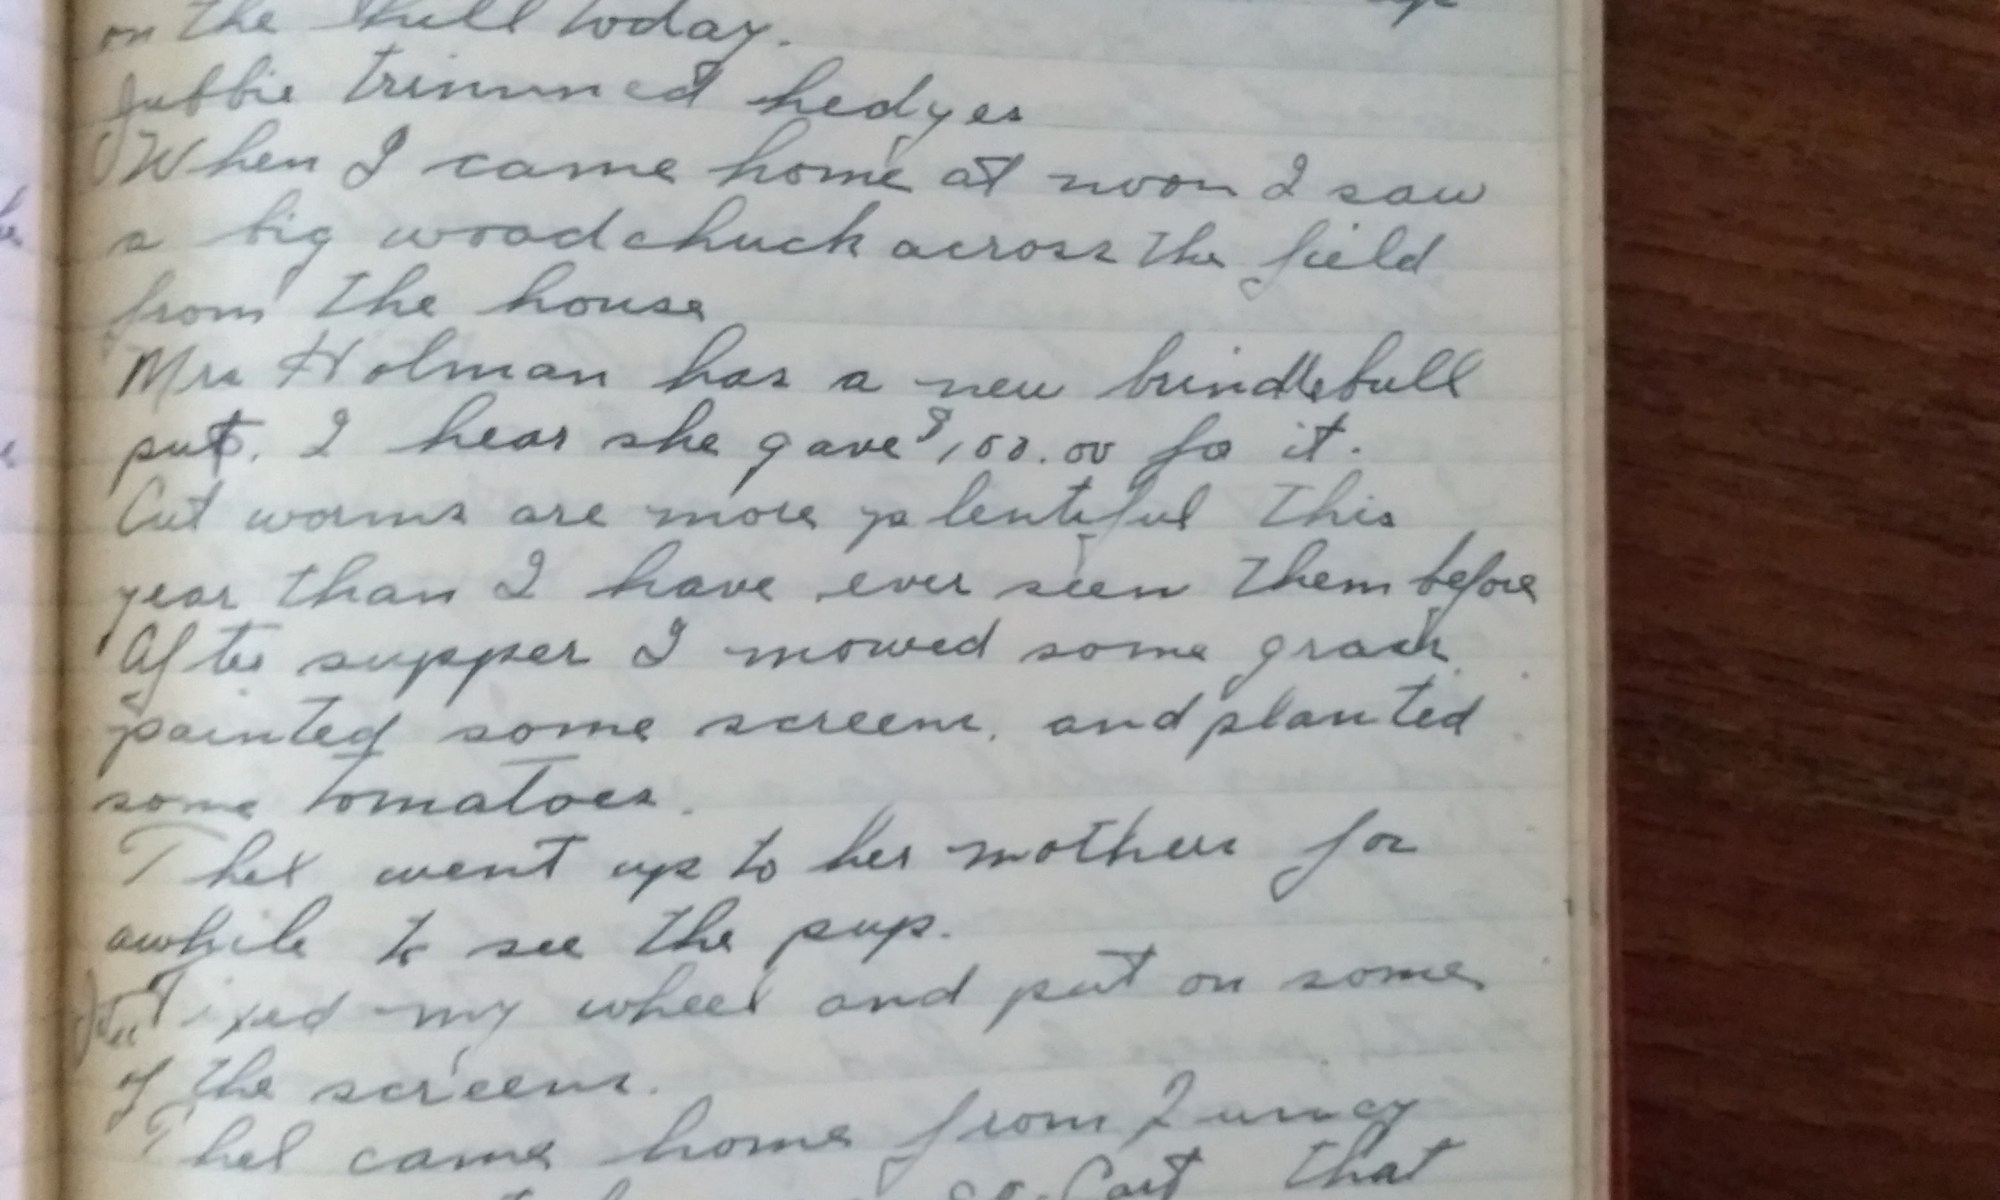 on the hill today.
Jubbie trimmed hedges
When I came home at noon I saw
a big woodchuck across the field
from the house
Mrs Holman has a new brindle bull
pup. I hear she gave $100.00 for it.
Cut worms are more plentiful this
year than I have ever seen them before
After supper I mowed some grass
painted some screens, and planted
some tomatoes.
Thel went up to her mothers for
awhile to see the pup.
fixed my wheel and put on some
of the screens.
Thel came home from
Cart that